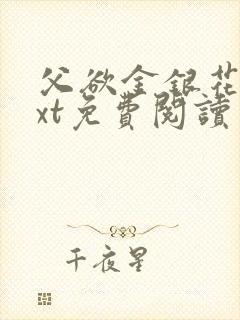 父欲金銀花
xt免費閱讀
千夜星